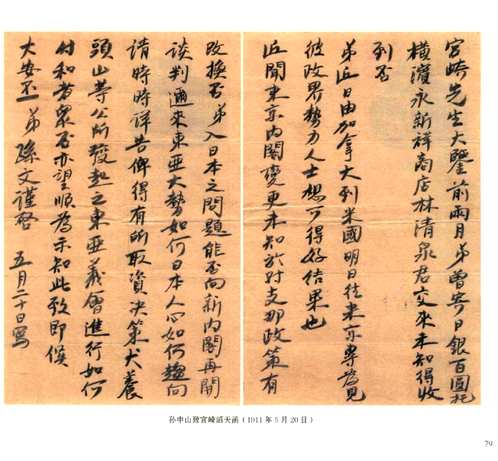 宮崎先生大鑒前兩月弟曾寄日銀百圓托
橫濱永新祥商店林清泉君交來未知得收
到否
弟近日由加拿大到米國明日往米京專為見
彼政界勢力人士想可得好結果也
近聞東京內閣變更未知於對支那政策有
改換否弟入日本之問題能否向新內閣再開
談判邇來東亞大勢如何日本人心如何趨向
請時時詳告俾得有所取資決策犬養
頭山等公所發起之東亞義會進行如何
付和者衆否亦望順為示知此致即候
大安不一 弟孫文謹啓 五月二十日寫
孙中山致宫崎滔天函（1911年5月20日）
79